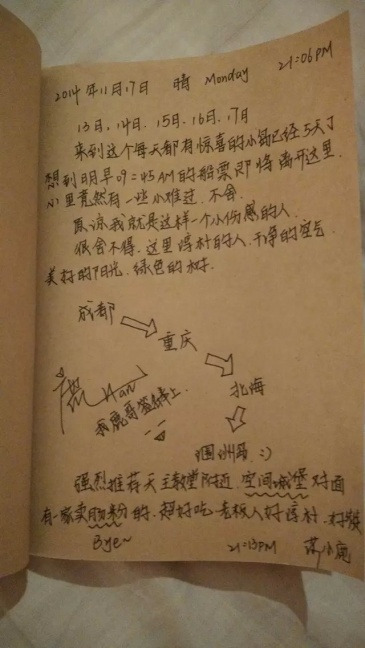 2014年11月17日 晴 Monday 21:06PM
13日、14日、15日、16日、17日
来到这个每天都有惊喜的小岛已经5天了
想到明早09:45AM的船票即将离开这里,
心里竟然有一些小难过、不舍.
原谅我就是这样一个小伤感的人.
很舍不得.这里淳朴的人、干净的空气、
美好的阳光、绿色的树.
成都
重庆
北海
涠洲岛 :)
鹿 Han
我鹿哥
强烈推荐天主教堂附近 空间城堡对面
有一家卖肠粉的.超好吃 老板人好淳朴、好
Bye~ 21:13PM